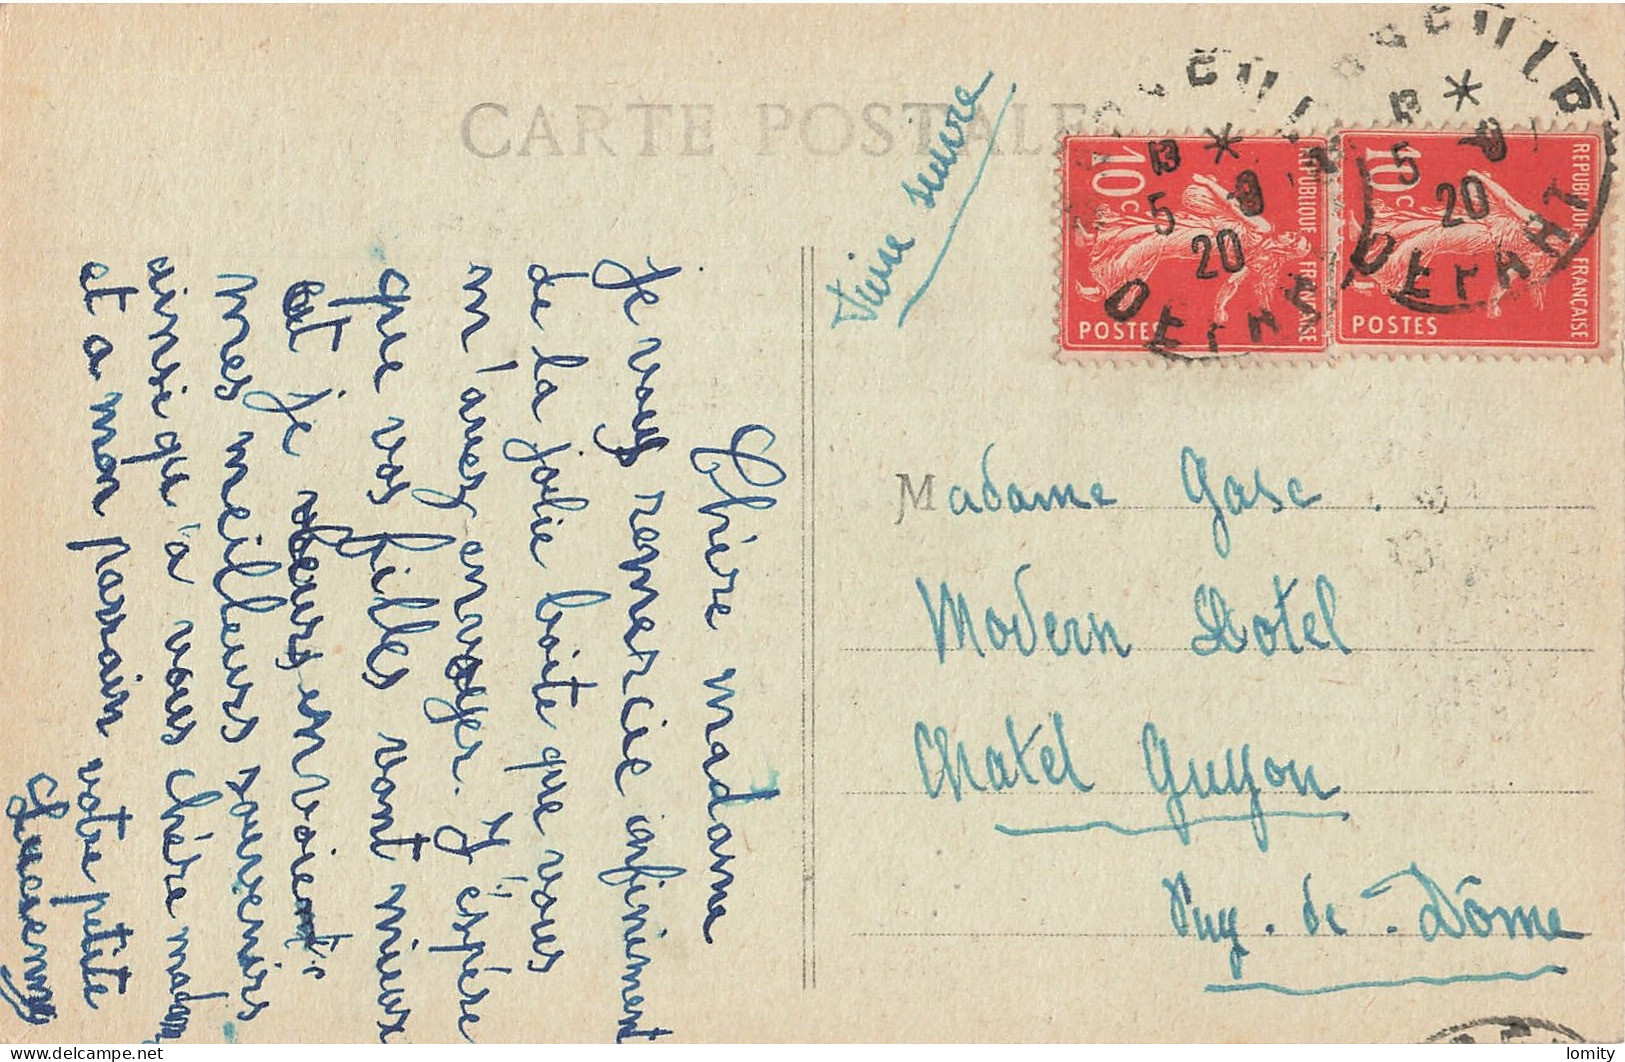 CARTE POSTALE
Faire suivre
10c
REPUBLIQUE FRANÇAISE
POSTES
10c
REPUBLIQUE FRANÇAISE
POSTES
13 *
5 - 9
20
13 *
5 - 9
20
Chère madame
je vous remercie infiniment
de la jolie boite que vous
m'avez envoyer. J'éspère
que vos filles vont mieux
et je leurs envoient
mes meilleurs souvenirs
ainsi qu'à vous chère madame
et a mon parrain votre petite
Lucienne
Madame Gasc
Modern Hotel
Chatel Guyon
Puy-de-Dôme
delcampe.net
lomity